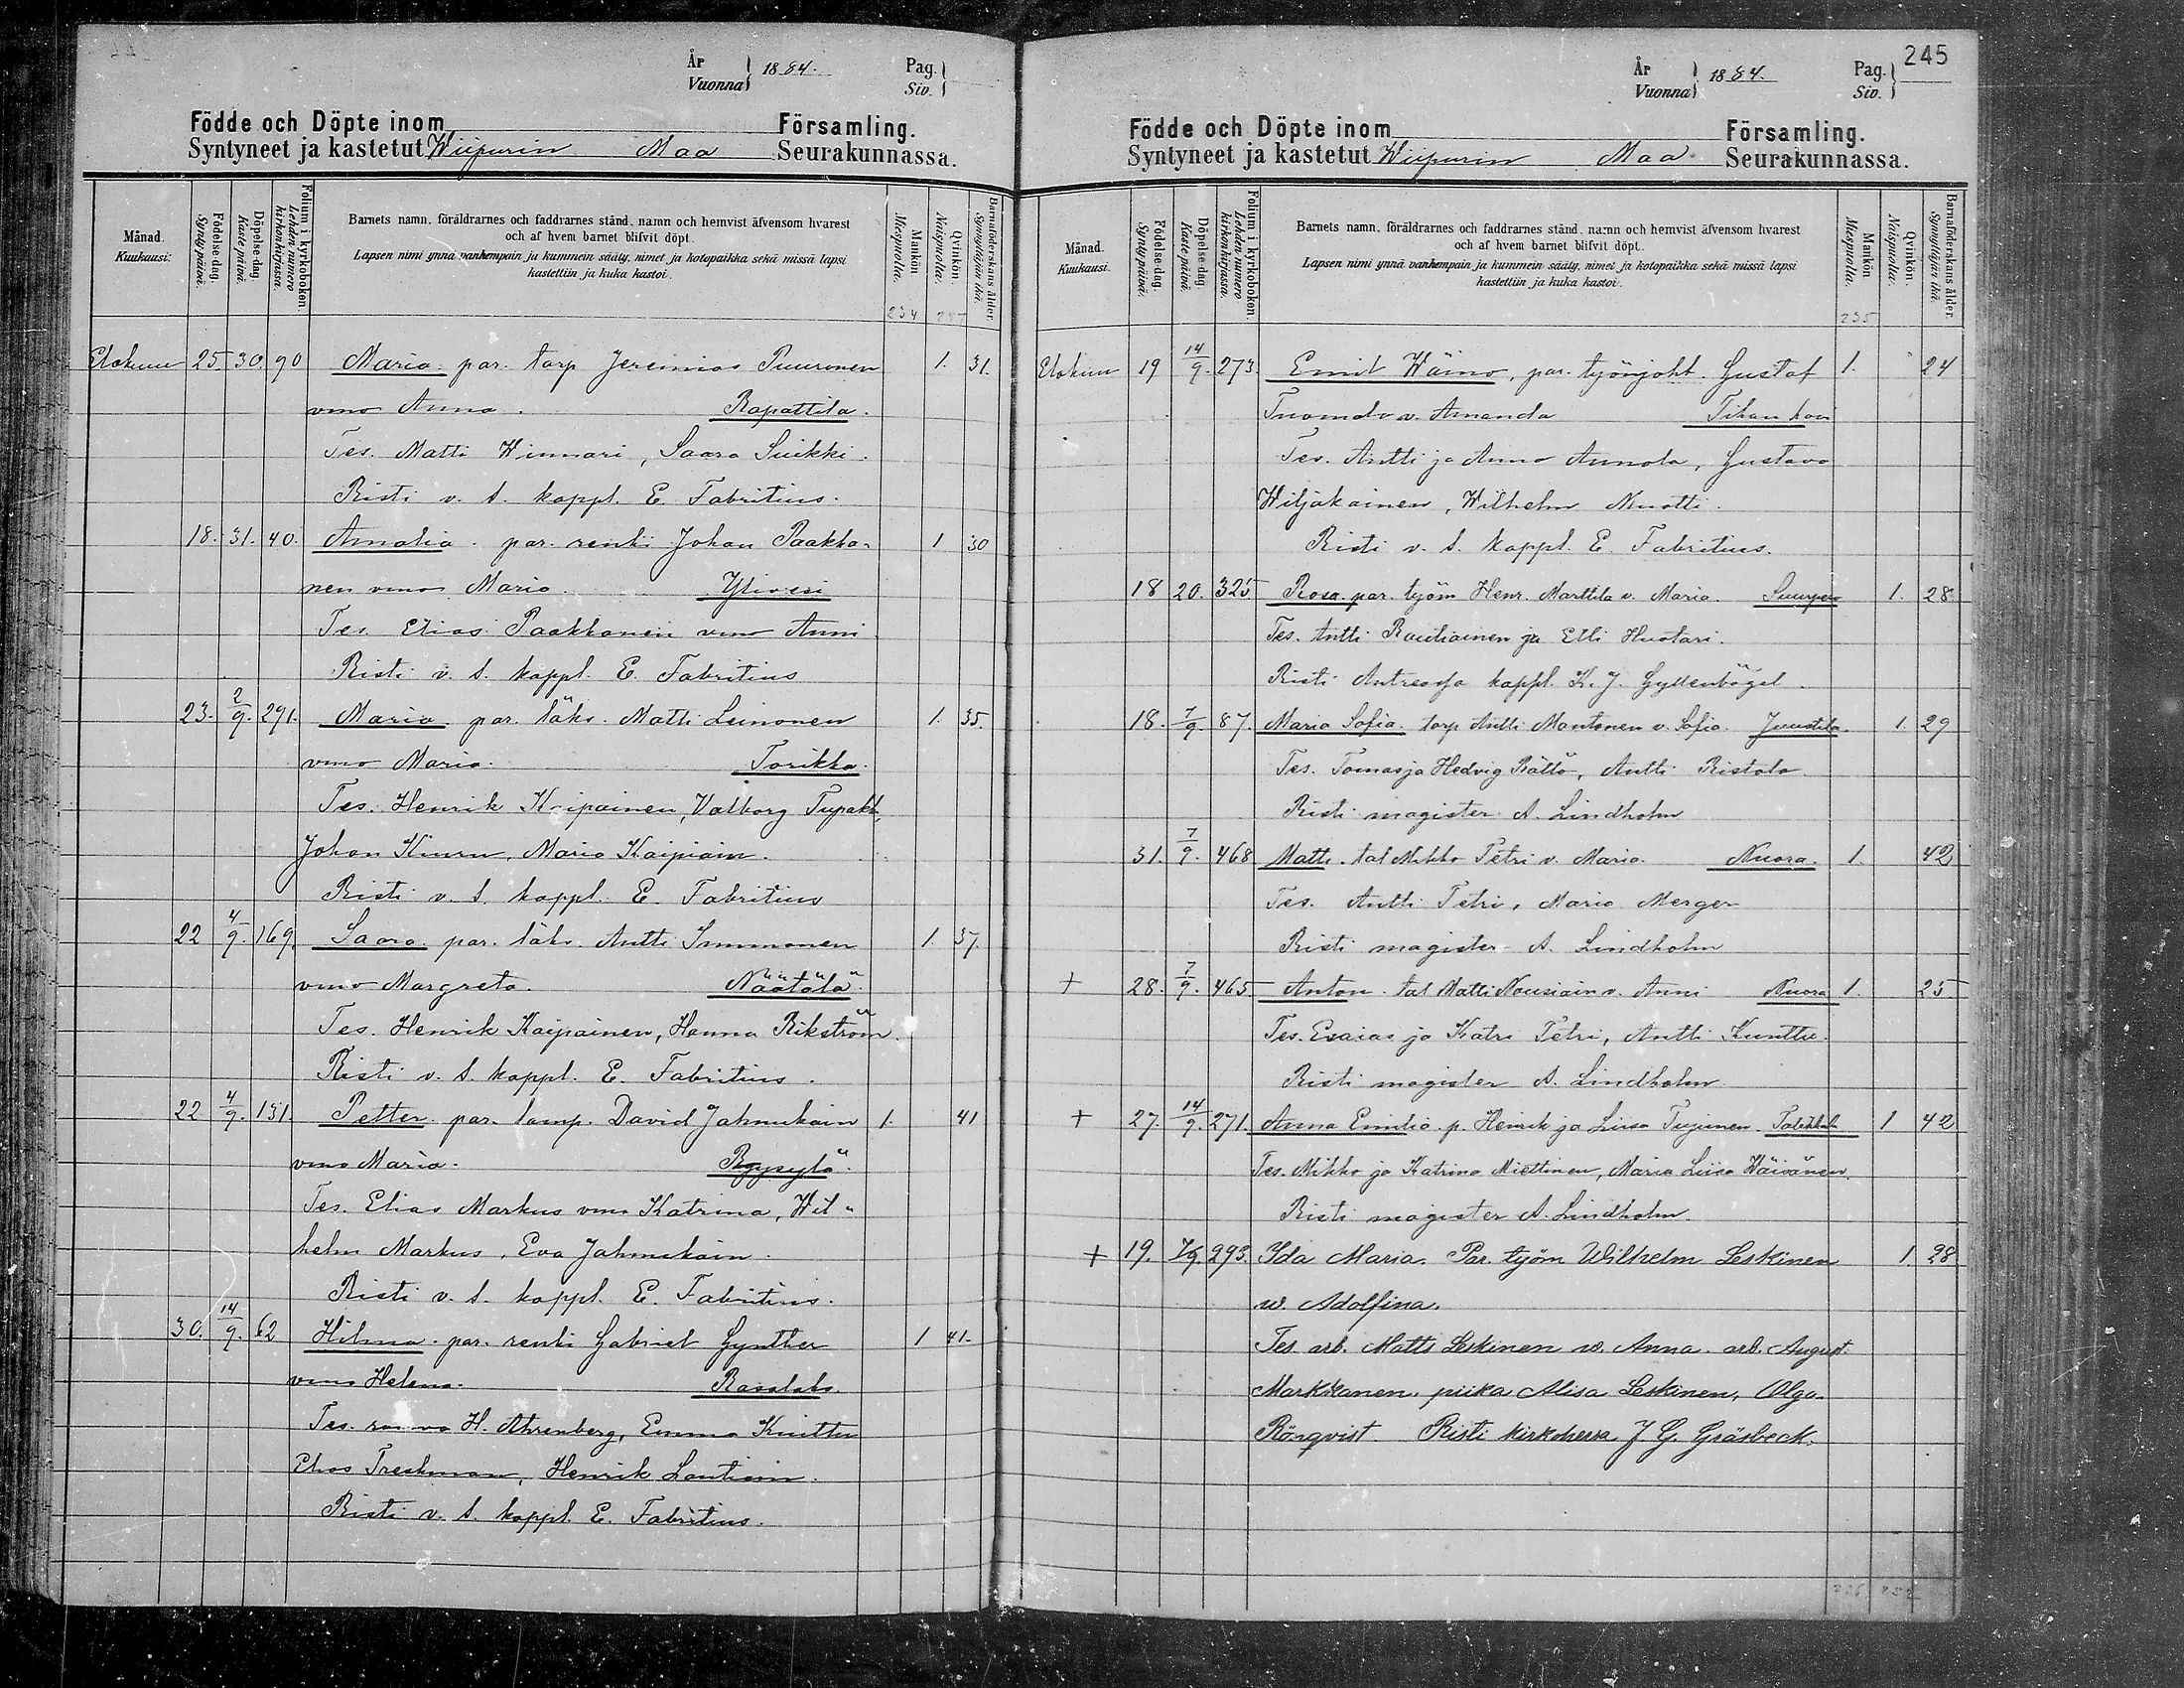 År
Vuonna
1884.
Pag.
Siv.
Födde och Döpte inom Församling.
Syntyneet ja kastetut Wiipurin Maa Seurakunnassa.
Månad.
Kuukausi:
Födelse-dag.
Synty-päivä.
Döpelse-dag.
Kaste-päivä.
Folium i kyrkoboken.
Lehden numero kirkonkirjassa.
Barnets namn, föräldrarnes och faddrarnes stånd, namn och hemvist äfvensom hvarest
och af hvem barnet blifvit döpt.
Lapsen nimi ynnä vanhempain ja kummein sääty, nimet ja kotopaikka sekä missä lapsi
kastettiin ja kuka kastoi.
Mankön.
Miespuolta.
Qvinkön.
Naispuolta.
Barnaföderskans ålder.
Synnyttäjän ikä.
234 247
Elokuu 25. 30. 90 Maria. par. torp Jeremias Puuronen 1. 31.
vmo Anna. Rapattila.
Tes. Matti Winnari, Saara Suikki.
Risti v. s. kappl. E. Fabritius.
18. 31. 40. Amalia. par. renki Johan Paakko- 1 30
nen vmo Maria. Ylivesi
Tes. Elias Paakkonen vmo Anni
Risti v. s. kappl. E. Fabritius
23. 2/9. 291. Maria. par. läks. Matti Leinonen 1. 35.
vmo Maria. Torikka.
Tes. Henrik Kaipainen, Valborg Tupakk,
Johan Kiuru, Maria Kaipiain.
Risti v. s. kappl. E. Fabritius
22 4/9. 169. Saara. par. läks. Antti Immonen 1. 37.
vmo Margreta. Näätälä.
Tes. Henrik Kaipainen, Hanna Rikström.
Risti v. s. kappl. E. Fabritius.
22 4/9. 131. Petter. par. lamp. David Jahnukain 1. 41
vmo Maria.
Tes. Elias Markus vmo Katrina, Wil-
helm Markus, Eva Jahnukain.
Risti v. s. kappl. E. Fabritius.
30. 14/9. 62 Hilma. par. renki Gabriel Gynther 1 41.
vmo Helena.
Tes. H. Ahrenberg, Emma Knittu
Elias Treskman, Henrik Lautiain.
Risti v. s. kappl. E. Fabritius.
245
År
Vuonna
1884.
Pag.
Siv.
Födde och Döpte inom Församling.
Syntyneet ja kastetut Wiipurin Maa Seurakunnassa.
Månad.
Kuukausi.
Födelse-dag.
Synty-päivä.
Döpelse-dag.
Kaste-päivä.
Folium i kyrkoboken.
Lehden numero kirkonkirjassa.
Barnets namn, föräldrarnes och faddrarnes stånd, namn och hemvist äfvensom hvarest
och af hvem barnet blifvit döpt.
Lapsen nimi ynnä vanhempain ja kummein sääty, nimet ja kotopaikka sekä missä lapsi
kastettiin ja kuka kastoi.
Mankön
Miespuolta.
Qvinkön.
Naispuolta.
Barnaföderskans ålder.
Synnyttäjän ikä.
235
Elokuu 19 14/9. 273. Emil Wäino, par. työnjoht. Gustaf 1. 24
v. Amanda
Tes. Antti ja Anna Annola, Gustava
Wiljakainen, Wilhelm Nuotti.
Risti v. s. kappl. E. Fabritius.
18 20. 325 Rosa. par. työm Henr. Marttila v. Maria. 1. 28
Tes. Antti Rautiainen ja Elli Huotari.
Risti Antrea kappl. K. J. Gyllenbögel.
18. 7/9. 87. Maria Sofia. torp Antti Montonen v. Sofia. Juustila. 1. 29
Tes. Tomas ja Hedvig Rättö, Antti Ristola.
Risti magister A. Lindholm
31. 7/9. 468 Matti. tal Mikko Petri v. Maria. Nuora. 1. 42
Tes. Antti Petri, Maria Merger
Risti magister A. Lindholm
+ 28. 7/9. 465 Anton. tal Matti Nousiain v. Anni Nuora 1. 25
Tes. Esaias ja Katri Petri, Antti Kunttu.
Risti magister A. Lindholm
+ 27. 14/9. 271. Anna Emilia. p. Henrik ja Liisa Tujunen. 1 42
Tes. Mikko ja Katrina Miettinen, Maria Liisa Häisänen.
Risti magister A. Lindholm.
+ 19. 7/9. 293. Ida Maria. Par. työm Wilhelm Leskinen 1. 28
w. Adolfina.
Tes. arb. Matts Leskinen w. Anna. arb. August
Markkanen, piika Alisa Leskinen, Olga
Rönqvist Risti kirkoherra J. G. Gräsbeck.
236 252